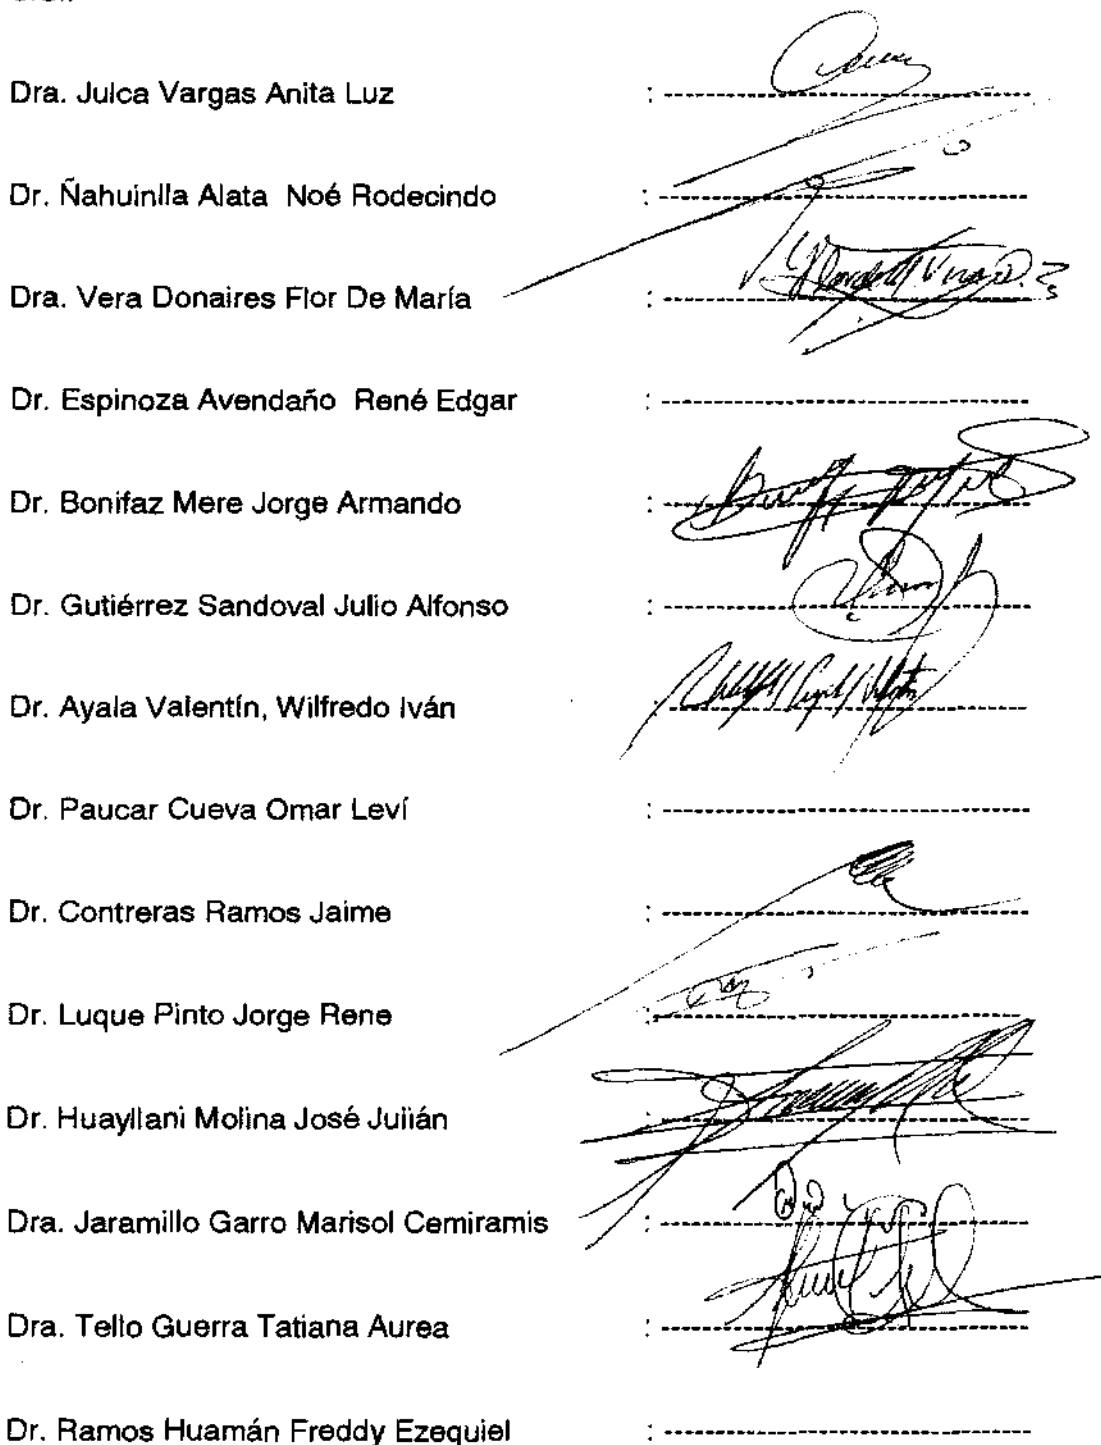 Dra. Julca Vargas Anita Luz :
Dr. Ñahuinlla Alata Noé Rodecindo :
Dra. Vera Donaires Flor De María :
Dr. Espinoza Avendaño René Edgar :
Dr. Bonifaz Mere Jorge Armando :
Dr. Gutiérrez Sandoval Julio Alfonso :
Dr. Ayala Valentín, Wilfredo Iván :
Dr. Paucar Cueva Omar Leví :
Dr. Contreras Ramos Jaime :
Dr. Luque Pinto Jorge Rene :
Dr. Huayllani Molina José Julián :
Dra. Jaramillo Garro Marisol Cemiramis :
Dra. Tello Guerra Tatiana Aurea :
Dr. Ramos Huamán Freddy Ezequiel :